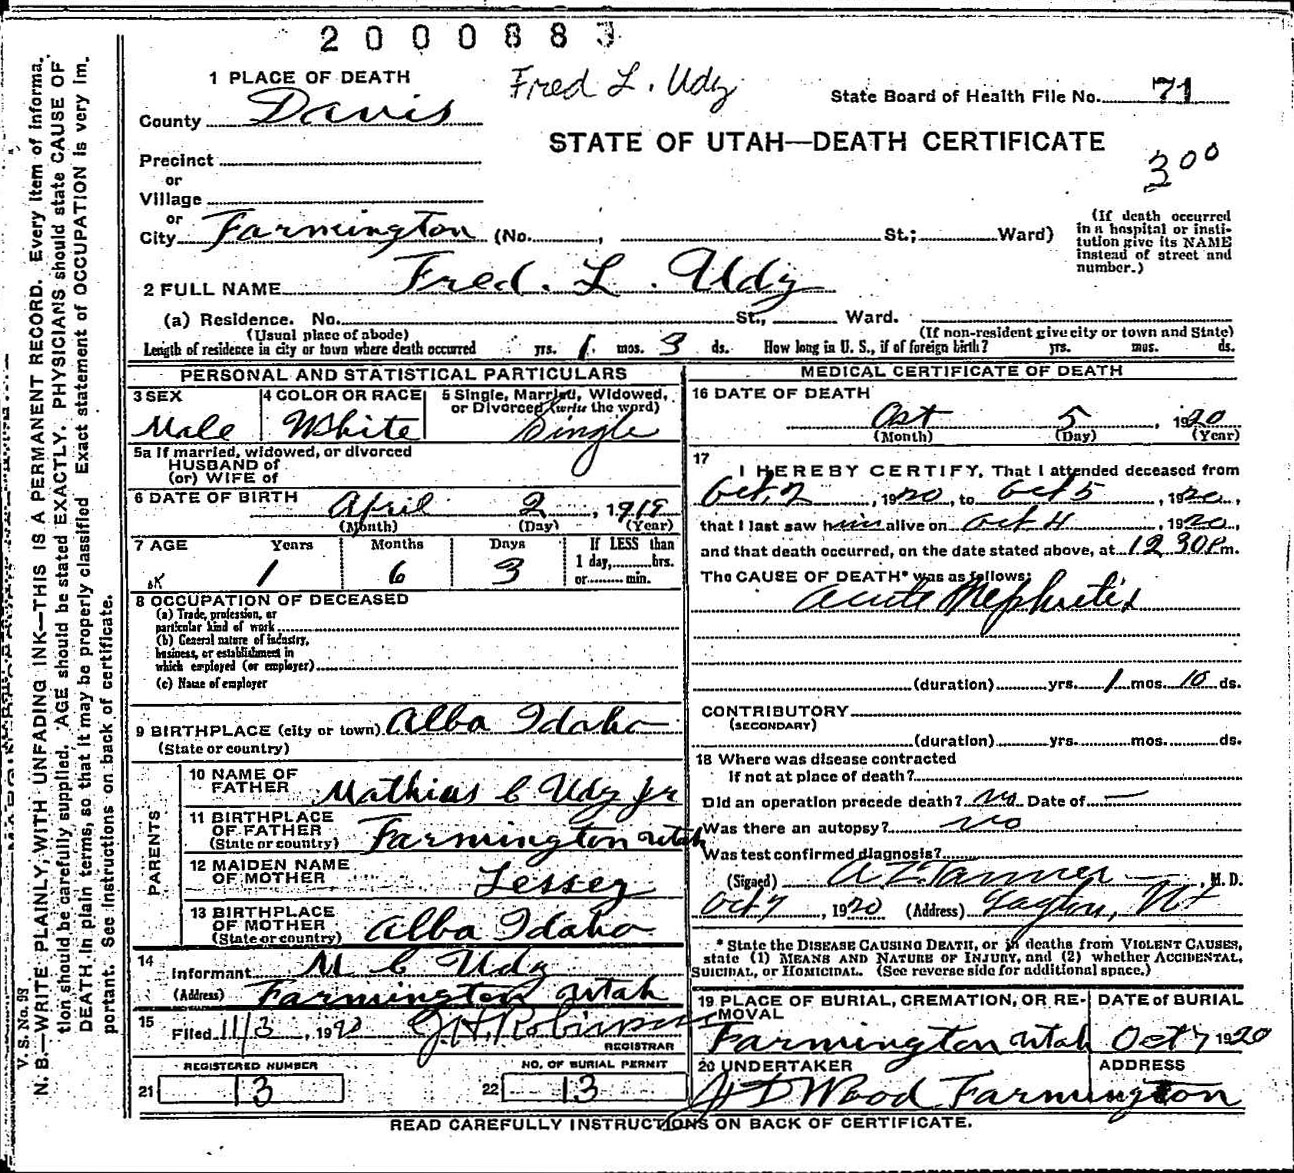 2000883
1 PLACE OF DEATH
Fred L. Udy
State Board of Health File No. 71
County Davis
STATE OF UTAH—DEATH CERTIFICATE
3 00
Precinct
or
Village
or
City Farmington (No. , St.; Ward)
(If death occurred in a hospital or insti-
tution give its NAME
instead of street and
number.)
2 FULL NAME Fred. L. Udy
(a) Residence. No. St., Ward.
(Usual place of abode) (If non-resident give city or town and State)
Length of residence in city or town where death occurred yrs. 1 mos. 3 ds. How long in U. S., if of foreign birth? yrs. mos. ds.
PERSONAL AND STATISTICAL PARTICULARS
3 SEX
Male
4 COLOR OR RACE
White
5 Single, Married, Widowed,
or Divorced (write the word)
Single
5a If married, widowed, or divorced
HUSBAND of
(or) WIFE of
6 DATE OF BIRTH
April 2, 1919
(Month) (Day) (Year)
7 AGE Years Months Days If LESS than
1 day, hrs.
or min.
OK 1 6 3
8 OCCUPATION OF DECEASED
(a) Trade, profession, or
particular kind of work
(b) General nature of industry,
business, or establishment in
which employed (or employer)
(c) Name of employer
9 BIRTHPLACE (city or town) Alba Idaho
(State or country)
PARENTS
10 NAME OF
FATHER Mathias C Udy Jr
11 BIRTHPLACE
OF FATHER
(State or country) Farmington Utah
12 MAIDEN NAME
OF MOTHER Lessey
13 BIRTHPLACE
OF MOTHER
(State or country) Alba Idaho
14
Informant M C Udy
(Address) Farmington Utah
15
Filed 11/3, 1920 J.H. Robinson
REGISTRAR
REGISTERED NUMBER
21 13
NO. OF BURIAL PERMIT
22 13
MEDICAL CERTIFICATE OF DEATH
16 DATE OF DEATH
Oct 5, 1920
(Month) (Day) (Year)
17
I HEREBY CERTIFY, That I attended deceased from
Oct. 2, 1920, to Oct 5, 1920,
that I last saw him alive on Oct 4, 1920,
and that death occurred, on the date stated above, at 12 30 P m.
The CAUSE OF DEATH* was as follows:
Acute Nephritis
(duration) yrs. 1 mos. 10 ds.
CONTRIBUTORY
(SECONDARY)
(duration) yrs. mos. ds.
18 Where was disease contracted
if not at place of death?
Did an operation precede death? No Date of —
Was there an autopsy? No
Was test confirmed diagnosis?
(Signed) A Z. Tanner, M. D.
Oct 7, 1920 (Address) Layton, Ut
* State the DISEASE CAUSING DEATH, or in deaths from VIOLENT CAUSES,
state (1) MEANS AND NATURE OF INJURY, and (2) whether ACCIDENTAL,
SUICIDAL, or HOMICIDAL. (See reverse side for additional space.)
19 PLACE OF BURIAL, CREMATION, OR RE-
MOVAL
Farmington Utah
DATE of BURIAL
Oct 7 1920
20 UNDERTAKER
J D Wood
ADDRESS
Farmington
READ CAREFULLY INSTRUCTIONS ON BACK OF CERTIFICATE.
V. S. No. 98
N. B.—WRITE PLAINLY, WITH UNFADING INK—THIS IS A PERMANENT RECORD. Every item of informa-
tion should be carefully supplied. AGE should be stated EXACTLY. PHYSICIANS should state CAUSE OF
DEATH in plain terms, so that it may be properly classified. Exact statement of OCCUPATION is very im-
portant. See instructions on back of certificate.